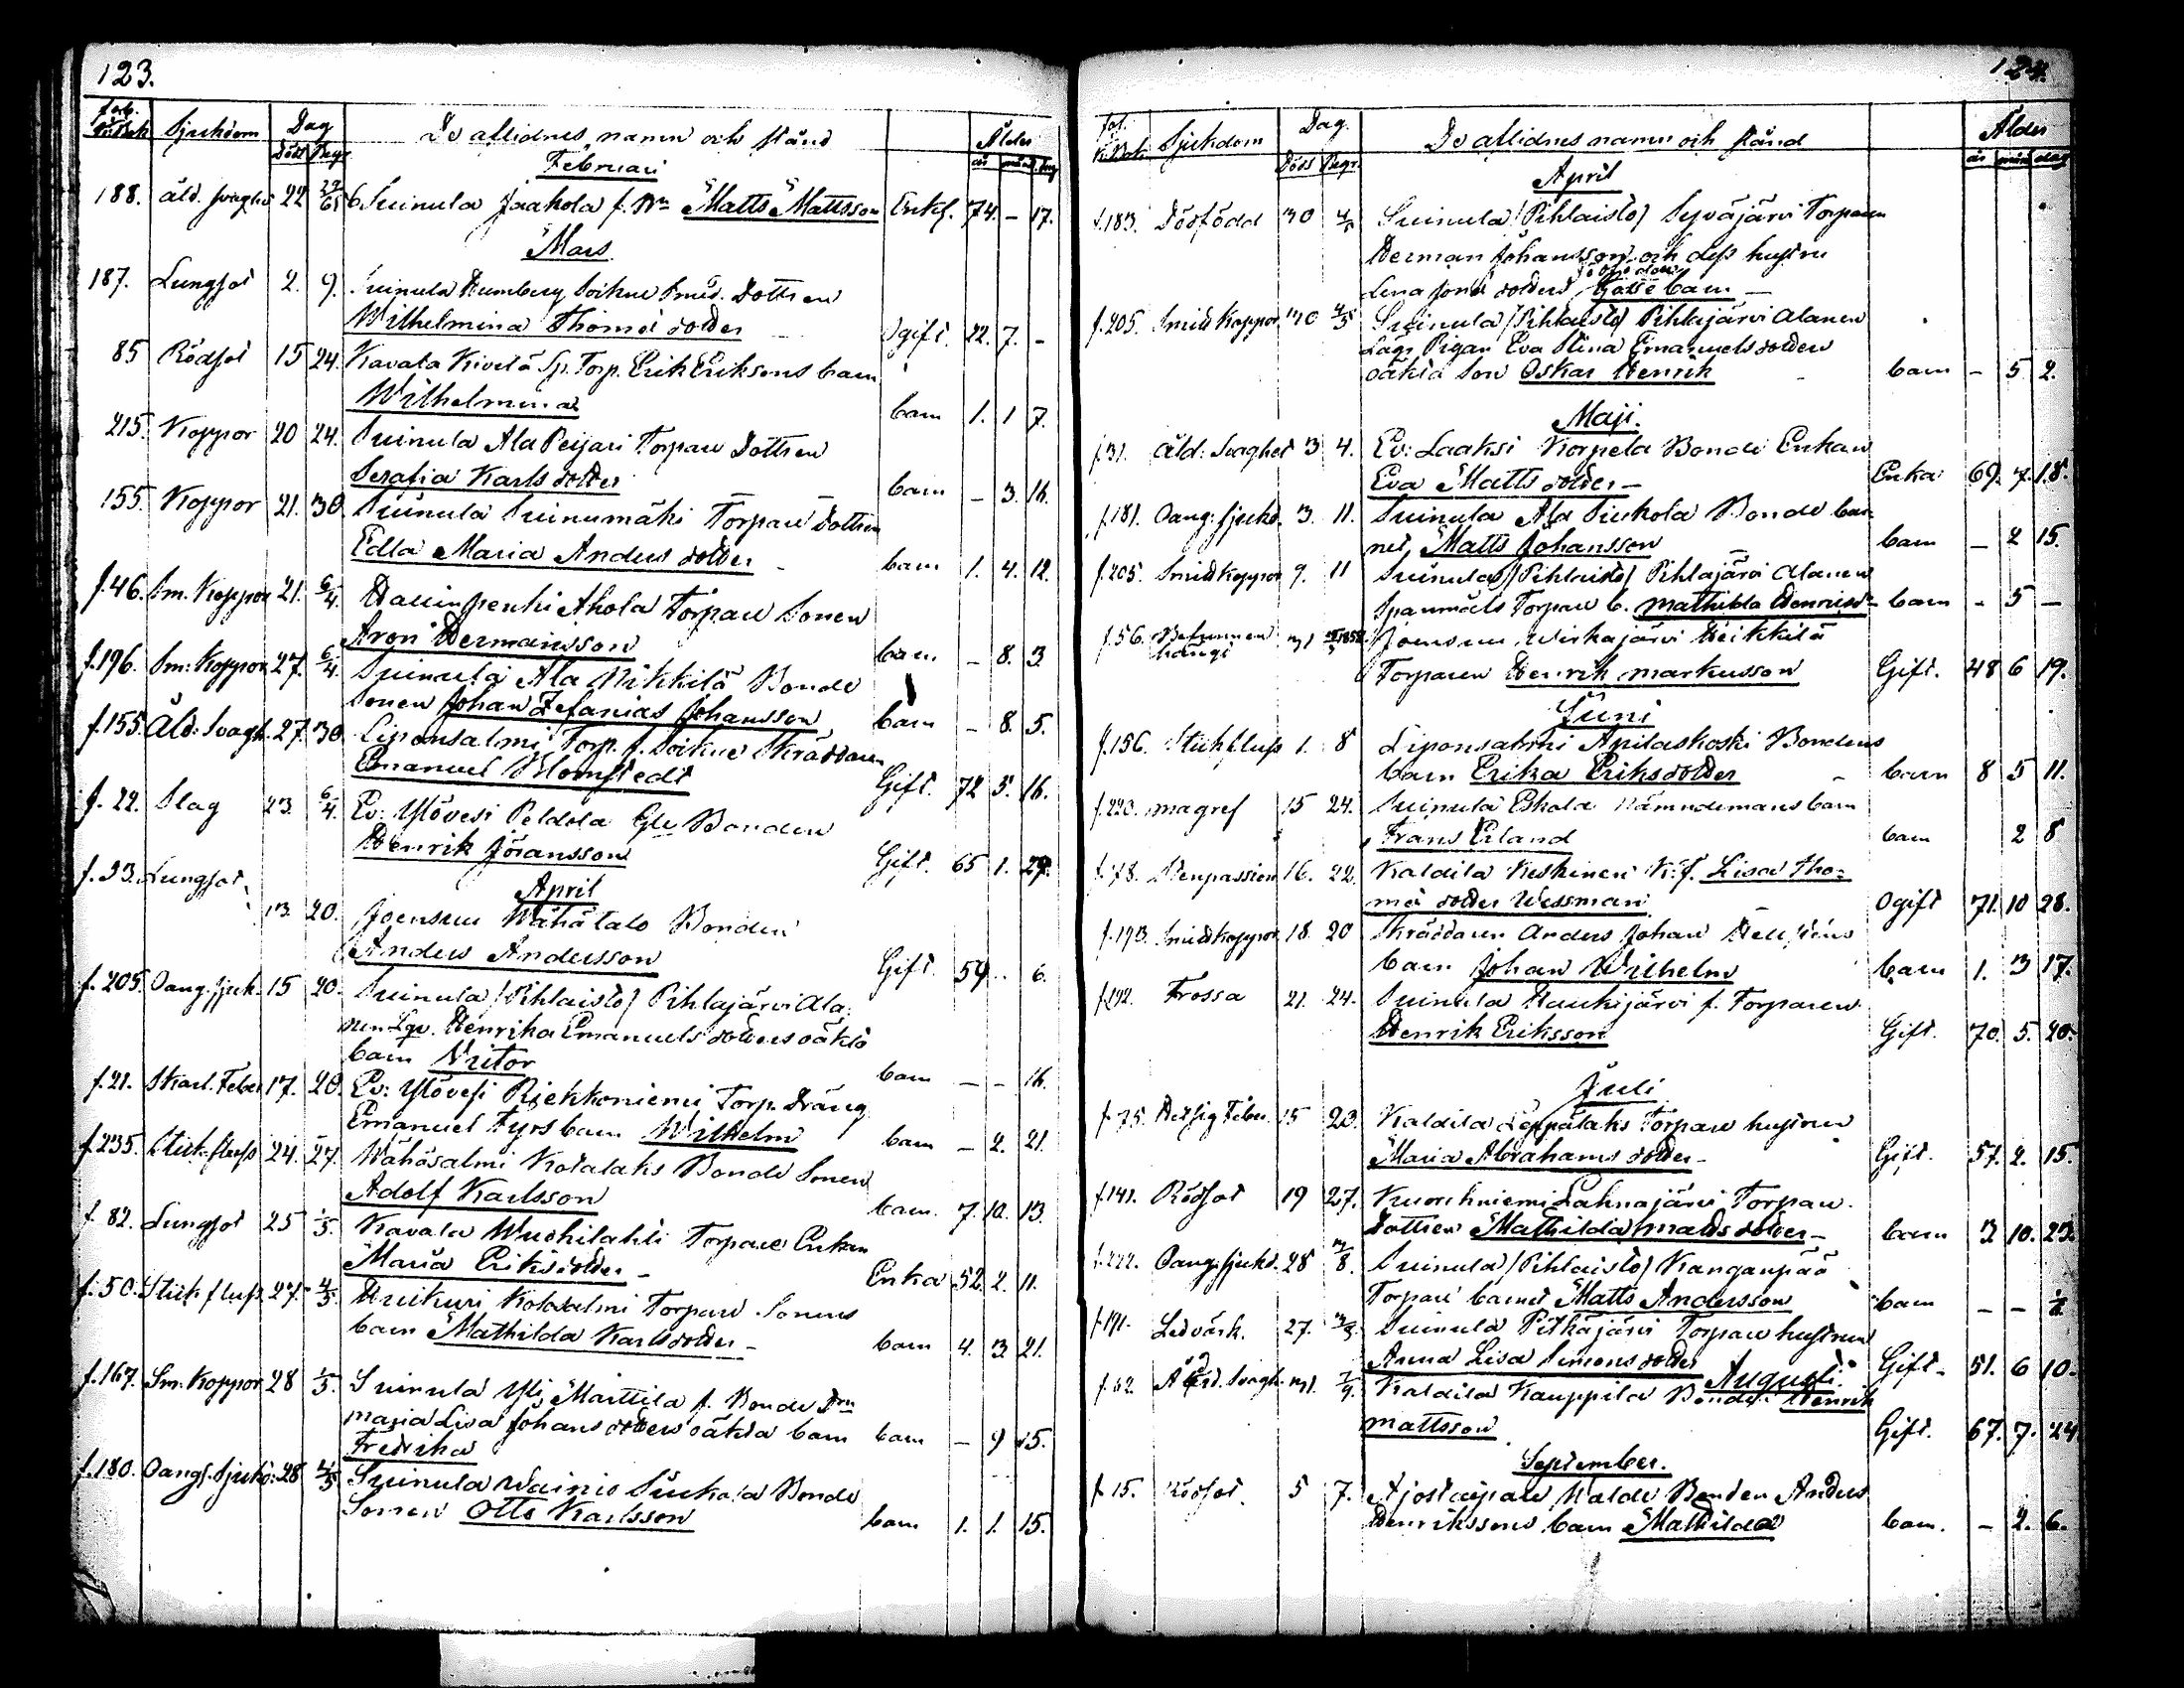 123.
fol. Sjukdom Dag De aflidnes namn och stånd Ålder
Död Begr. år mån dag
Februari
188. åld. svaghet 22 Suinula Jaakola f. Matts Mattsson Enkl. 74. – 17.
Mars
187. Lungsot 2. 9. Suinula Dottren
Wilhelmina Thomæ dotter Ogift. 22. 7. –
85 Rödsot 15 24. Kavala Kivelä Sp. Torp. Erik Eriksons barn
Wilhelmina barn 1. 1 7.
215. Koppor 20 24. Suinula Ala Peijari Torpare Dottren
Serafia Karls dotter barn – 3. 16.
155. Koppor 21. 30. Suinula Suinumäki Torpare Dottren
Edla Maria Anders dotter – barn 1. 4. 12.
f. 46. Sm. Koppor 21. 6/4. Akola Torpare Sonen
Aron Hermansson barn – 8. 3.
f. 196. Sm: Koppor 27. 6/4. Suinula Ala Nikkilä Bonde
Sonen Johan Zefanias Johansson barn – 8. 5.
f. 155. Åld: Svagh. 27. 30. Liponsalmi Torp. f. Soikue Skräddaren
Emanuel Blomstedt Gift. 72 5. 16.
f. 22. Slag 23. 6/4. Ev: Ylövesi Peldola Gle Bonden
Henrik Jöransson Gift. 65 1. 27.
April
f. 33. Lungsot 13. 20. Joensuu Wähätalo Bonden
Anders Andersson Gift. 59 . . 6.
f. 205. Oang. sjuk. 15 20. Suinula (Pihlaisto) Pihlajärvi Ala-
nen Henrika Emanuels dotters oäkta
barn Victor barn – – 16.
f. 21. Skarl. Feber 17. 20. Ev: Ylövesi Riekkoniemi Torp. Dräng
Emanuel Fyrs barn Wilhelm barn – 2. 21.
f. 235. Stick fluss 24. 27. Wähäsalmi Kotalaks Bonde Sonen
Adolf Karlsson barn. 7. 10. 13.
f. 82. Lungsot 25 1/5. Kavala Wuohilahti Torpare Enkan
Maria Eriks dotter – Enka 52. 2. 11.
f. 50. Stick fluss. 27. 4/5. Torpare Sonens
barn Mathilda Karlsdotter – barn 4. 3. 21.
f. 167. Sm. Koppor 28 1/5. Suinula Yli Marttila f. Bonde
Maria Lisa Johans dotters oäkta barn barn – 9 15.
Fredrika
f. 180. Oang. Sjukd: 28 4/5 Suinula Wainio Siukola Bonde
Sonen Otto Karlsson barn 1. 1. 15.
124.
fol. Sjukdom Dag. De aflidnes namn och stånd Ålder
K. Bok Död Begr. år mån dag
April
f. 183. Dödfödd 30 4/5 Suinula (Pihlaisto) Syväjärvi Torparen
Herman Johansson och dess hustru
Lena Jons dotters Gosse barn –
f. 205. Smitt Koppor 30 4/5 Suinula (Pihlaisto) Pihlajärvi Alanen
Lägs Pigan Eva Stina Emanuels dotters
oäkta Son Oskar Henrik barn – 5 2.
Maji.
f. 31. Åld: Svaghet 3 4. Ev: Laaksi Korpela Bonde Enkan
Eva Matts dotter – Enka 69. 7. 18.
f. 181. Oang: sjukd. 3. 11. Suinula Ala Siukola Bonde bar-
net, Matts Johansson barn – 2 15.
f. 205. Smitt Koppor 9. 11 Suinula (Pihlaisto) Pihlajärvi Alanen
Spanmåls Torpare b. Mathilda barn – 5 –
f. 56. Joensuu Wirkajärvi Heikkilä
Torparen Henrik Markusson Gift. 48 6 19.
Juni
f. 156. Stickfluss 1. 8 Liponsalmi Apilaskoski Bondens
barn Erika Eriksdotter – barn 8 5 11.
f. 220. magref 15 24. Suinula Eskola Nämndemans barn
Frans Erland barn 2 8
f. 78. Stenpassion 16. 22. Kaldila Keskinen K. f. Lisa Tho-
mæ dotter Wessman Ogift 71. 10 28.
f. 193. Smitt koppor. 18. 20 Skräddaren Anders Johan
barn Johan Wilhelm barn 1. 3 17.
f. 192. Frossa 21. 24. Suinula Haukijärvi f. Torparen
Henrik Eriksson Gift. 70. 5. 20.
Juli
f. 75. Hetsig Feber 15 23. Kaldila Leppälaks Torpare hustrun
Maria Abrahams dotter – Gift. 57. 2. 15.
f. 141. Rödsot 19 27. Lahnajärvi Torpare
Dottren Mathilda Matts dotter – barn 3 10. 23.
f. 222. Oang. sjukd. 28 3/8. Suinula (Pihlaisto) Kanganpää
Torpare barnet Matts Andersson barn – – ½.
f. 191. Ledvärk. 27. 3/8. Suinula Pitkäjärvi Torpare hustrun
Anna Lisa Simons dotter Gift – 51. 6 10.
Augusti.
f. 62. Ålerd. Svagh. 31. 7/9. Kaldila Kauppila Bonde Henrik
Mattsson Gift. 67. 7. 24
September.
f. 15. Rödsot. 5 7. Bonden Anders
Henrikssons barn Mathilda barn. – 2. 6.